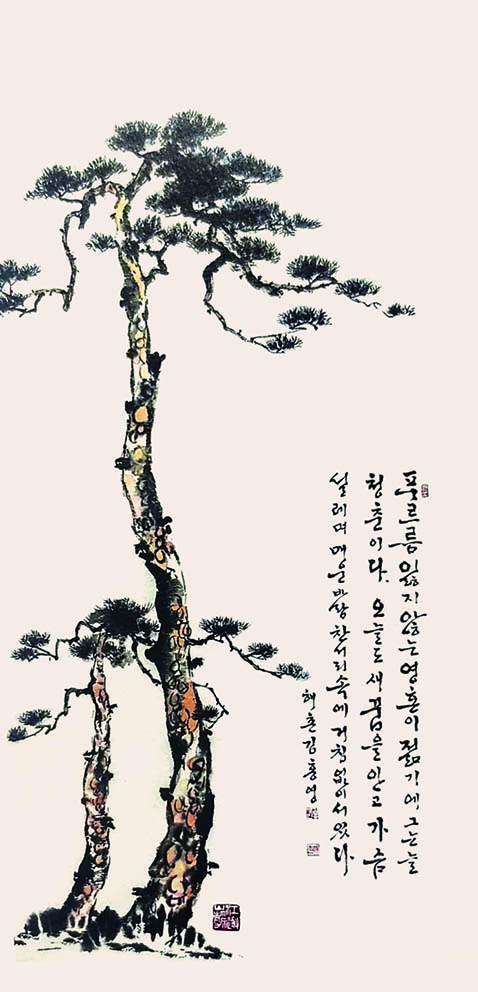 푸르름 잃지 않는 영혼이 젊기에 그는 늘
청춘이다. 오늘도 새 꿈을 안고 가슴
설레며 매운바람 찬서리 속에 거침없이 서 있다
해춘 김흥영